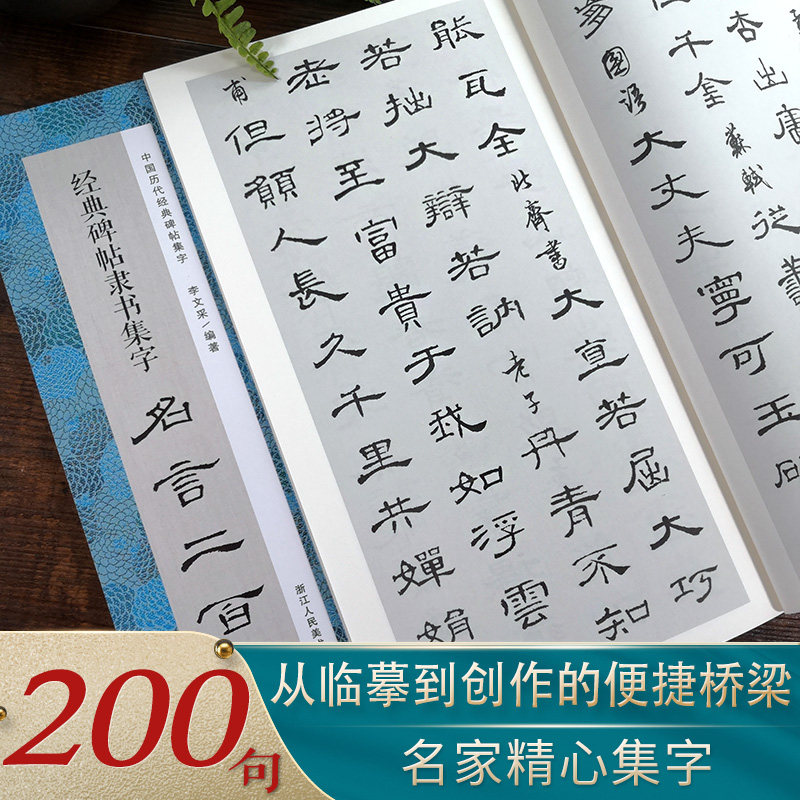 杏出
千金 蘇軾 從
國語 大丈夫寧可玉
能瓦全 北齊書 大直若屈大巧
若拙大辯若訥 老子 丹青不知
老將至富貴于我如浮雲
甫 但願人長久千里共嬋娟
中国历代经典碑帖集字
李文采/编著
经典碑帖隶书集字
名言二百
浙江人民美
200句
从临摹到创作的便捷桥梁
名家精心集字